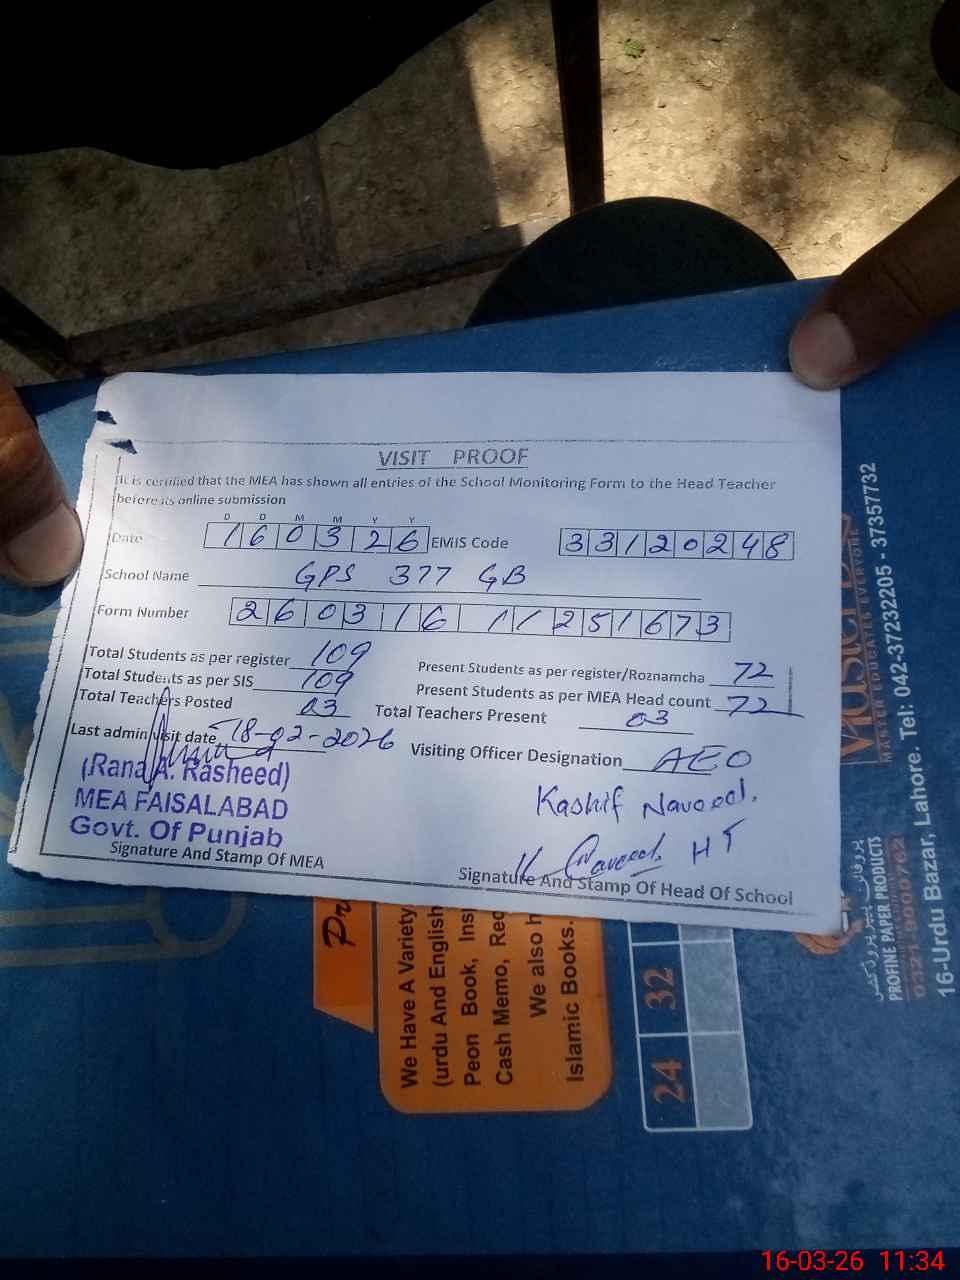 VISIT PROOF
It is certified that the MEA has shown all entries of the School Monitoring Form to the Head Teacher
before its online submission
D D M M Y Y
Date 160326 EMIS Code 33120248
School Name GPS 377 GB
Form Number 260316 11251673
Total Students as per register 109 Present Students as per register/Roznamcha 72
Total Students as per SIS 109 Present Students as per MEA Head count 72
Total Teachers Posted 03 Total Teachers Present 03
Last admin visit date 18-02-2026 Visiting Officer Designation AEO
(Rana A. Rasheed)
MEA FAISALABAD
Govt. Of Punjab
Kashif Naveed.
K Naveed. HT
Signature And Stamp Of MEA
Signature And Stamp Of Head Of School
We Have A Variety
(urdu And English
Peon Book,
Cash Memo,
We also
Islamic Books.
24 32
MASTER EDUCATES EVERYONE
PROFINE PAPER PRODUCTS
0321-9000762
16-Urdu Bazar, Lahore. Tel: 042-37232205 - 37357732
16-03-26 11:34